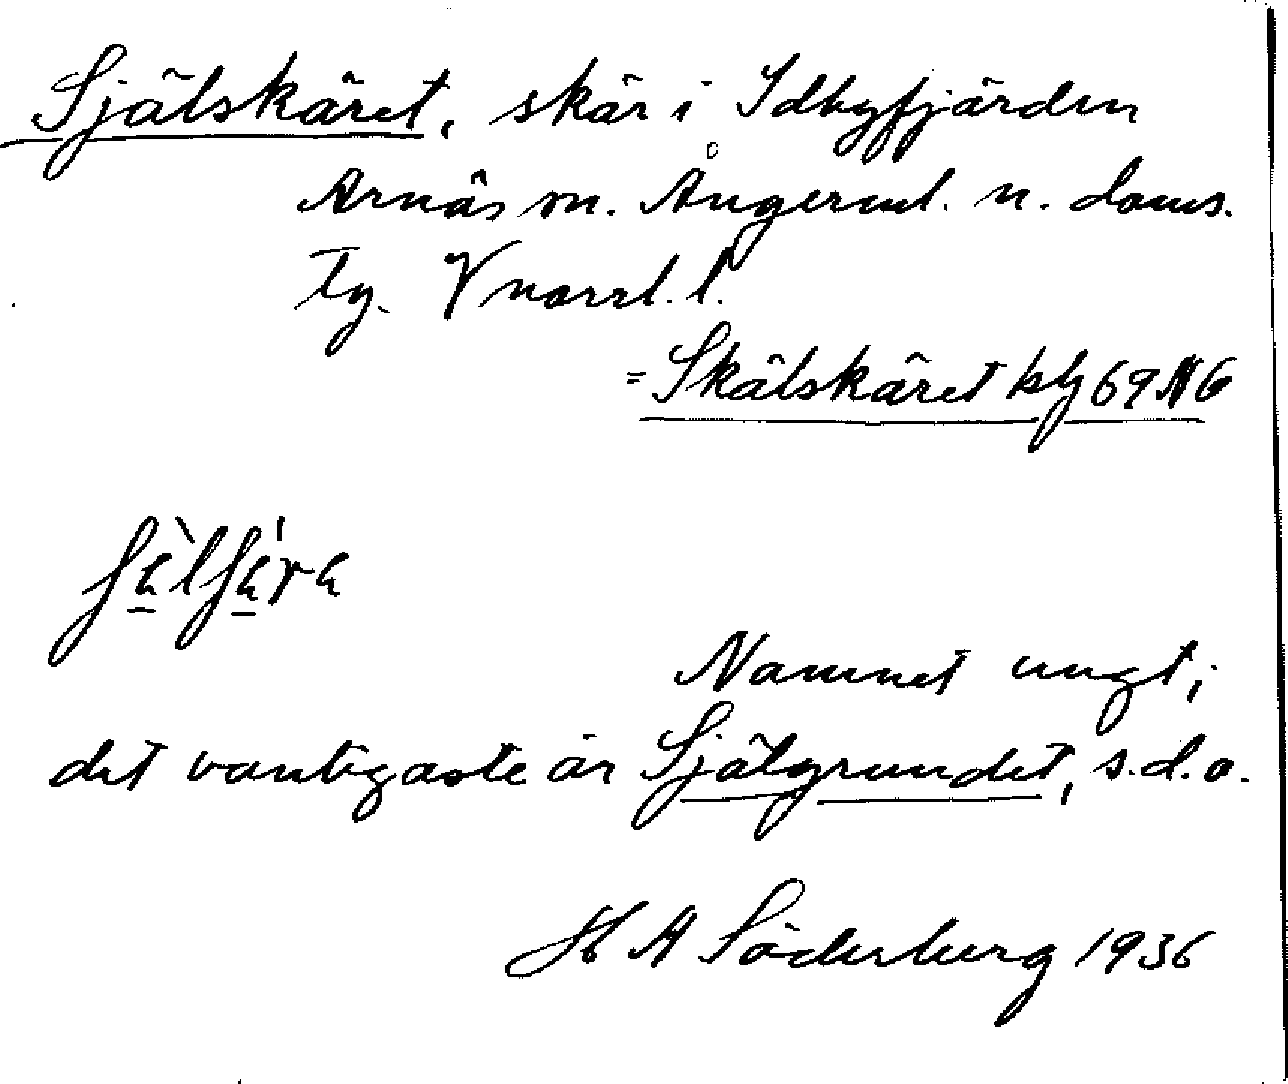 Själskäret, skär i Idbyfjärden
Arnäs sn. Ångerml. n. doms.
tg. Vnorrl. l.
= Skälskäret kbl 69 NG
Namnet ungt;
det vanligaste är Själgrundet, s.d.o.
H A Söderberg 1936